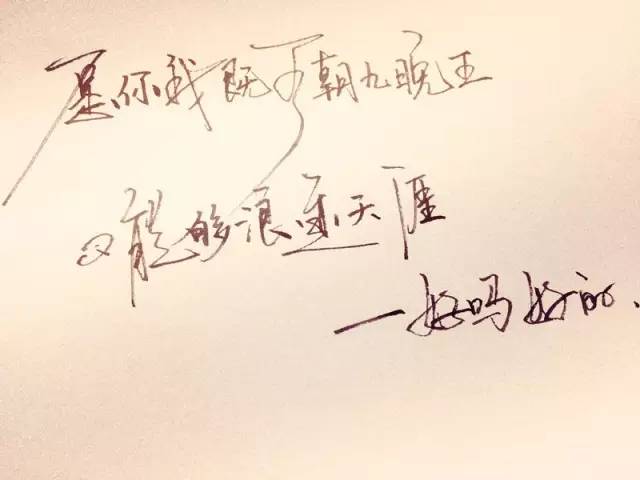 愿你我既可朝九晚五
又能够浪迹天涯
一好吗好的.